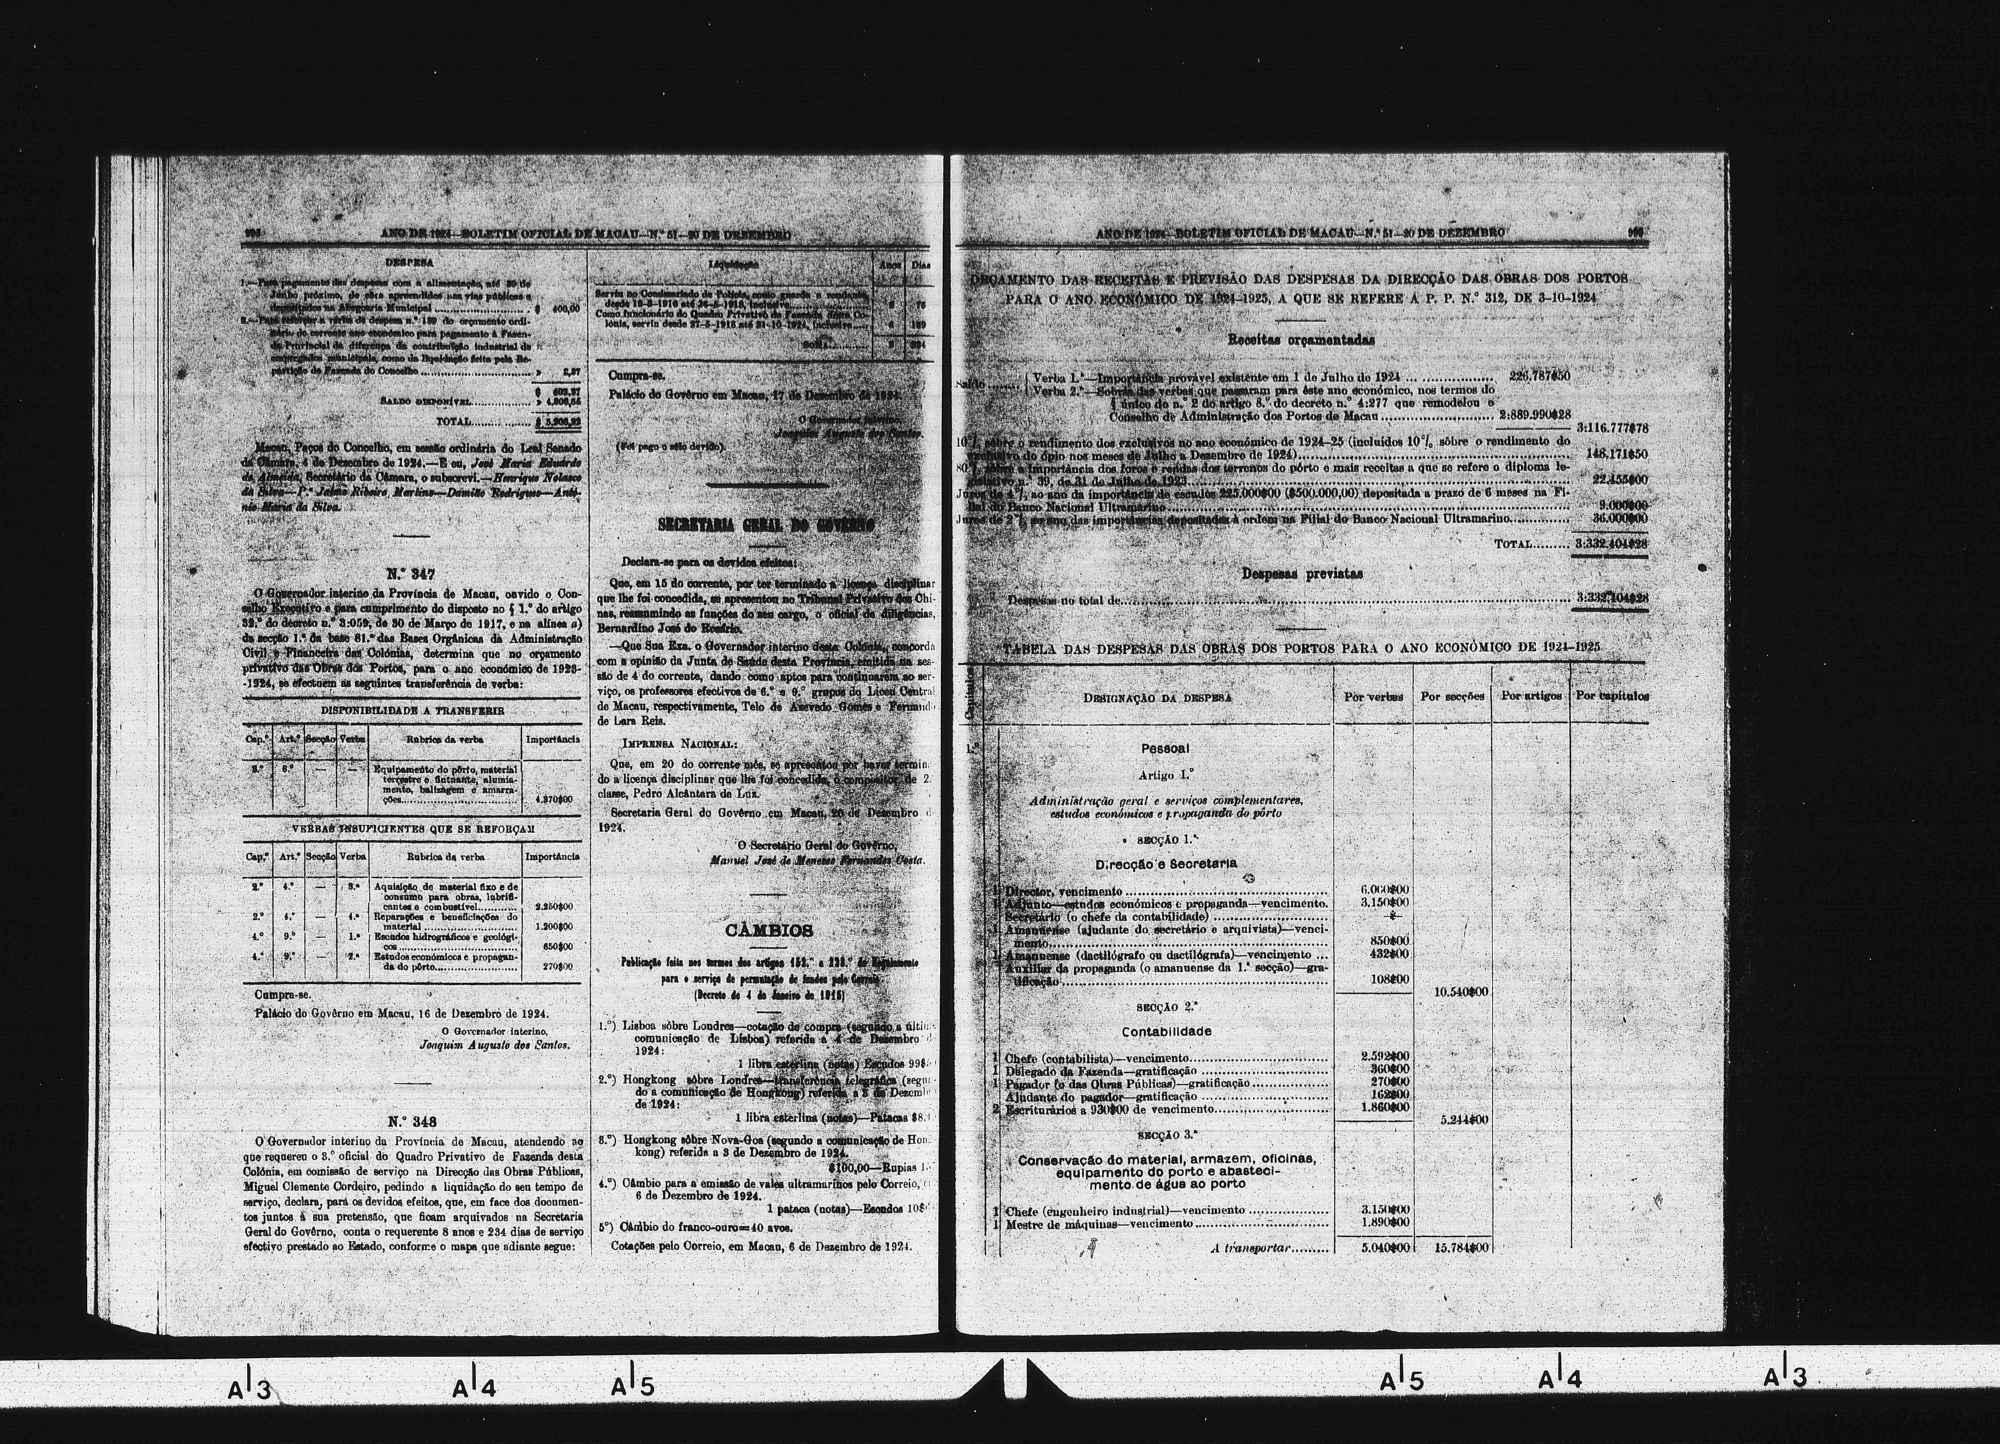 ANO DE 1924—BOLETIM OFICIAL DE MACAU—N.º 51—20 DE DEZEMBRO
DESPESA
1.—Para pagamento das despesas com a alimentação, até 30 de
Junho próximo, de cães apreendidos nas vias públicas e
depositados na Albergaria Municipal ........ $ 400,00
2.—Para reforçar a verba de despesa n.º 189 do orçamento ordi-
nário do corrente ano económico para pagamento à Fazen-
da Provincial da diferença da contribuïção industrial de
empregados municipais, como da liquidação feita pela Re-
partição de Fazenda do Concelho ........ » 2,27
SALDO DISPONÍVEL
TOTAL
Macau, Paços do Concelho, em sessão ordinária do Leal Senado
da Câmara, 4 de Dezembro de 1924.—E eu, José Maria Eduardo
de Almeida, Secretário da Câmara, o subscrevi.—Henrique Nolasco
da Silva—P.e Jaime Ribeiro Martins—Damião Rodrigues—Antó-
nio Maria da Silva.
N.º 347
O Governador interino da Província de Macau, ouvido o Con-
selho Executivo e para cumprimento do disposto no § 1.º do artigo
32.º do decreto n.º 3:059, de 30 de Março de 1917, e na alínea a)
da secção 1.ª da base 81.ª das Bases Orgânicas da Administração
Civil e Financeira das Colónias, determina que no orçamento
privativo das Obras dos Portos, para o ano económico de 1923-
-1924, se efectuem as seguintes transferência de verba:
DISPONIBILIDADE A TRANSFERIR
Cap.º Art.º Secção Verba Rubrica da verba Importância
3.º 6.º — — Equipamento do pôrto, material
terrestre e flutuante, alumia-
mento, balizagem e amarra-
ções ........ 4.370$00
VERBAS INSUFICIENTES QUE SE REFORÇAM
Cap.º Art.º Secção Verba Rubrica da verba Importância
2.º 4.º — 3.ª Aquisição de material fixo e de
consumo para obras, lubrifi-
cantes e combustível ........ 2.250$00
2.º 4.º — 4.ª Reparações e beneficiações do
material ........ 1.200$00
4.º 9.º — 1.ª Escudos hidrográficos e geológi-
cos ........ 650$00
4.º 9.º — 2.ª Estudos económicos e propagan-
da do pôrto ........ 270$00
Cumpra-se.
Palácio do Govêrno em Macau, 16 de Dezembro de 1924.
O Governador interino,
Joaquim Augusto dos Santos.
N.º 348
O Governador interino da Província de Macau, atendendo ao
que requereu o 3.º oficial do Quadro Privativo de Fazenda desta
Colónia, em comissão de serviço na Direcção das Obras Públicas,
Miguel Clemente Cordeiro, pedindo a liquidação do seu tempo de
serviço, declara, para os devidos efeitos, que, em face dos documen-
tos juntos à sua pretensão, que ficam arquivados na Secretaria
Geral do Govêrno, conta o requerente 8 anos e 234 dias de serviço
efectivo prestado ao Estado, conforme o mapa que adiante segue:
Liquidação Anos Dias
Serviu no Comissariado de Polícia, como guarda e rondante,
desde 13-3-1916 até 26-5-1918, inclusive ........ 2 75
Como funcionário do Quadro Privativo de Fazenda desta Co-
lónia, serviu desde 27-5-1918 até 31-10-1924, inclusive ........ 6 159
SOMA ........ 8 234
Cumpra-se.
Palácio do Govêrno em Macau, 17 de Dezembro de 1924.
O Governador interino,
Joaquim Augusto dos Santos.
(Foi pago o sêlo devido).
SECRETARIA GERAL DO GOVÊRNO
Declara-se para os devidos efeitos:
Que, em 15 do corrente, por ter terminado a licença disciplinar
que lhe foi concedida, se apresentou no Tribunal Privativo dos Chi-
nas, reassumindo as funções do seu cargo, o oficial de diligências,
Bernardino José do Rosário.
—Que Sua Exa. o Governador interino desta Colónia, concorda
com a opinião da Junta de Saúde desta Província, emitida na ses-
são de 4 do corrente, dando como aptos para continuarem ao ser-
viço, os professores efectivos de 6.º e 9.º grupos do Liceu Central
de Macau, respectivamente, Telo de Azevedo Gomes e Fernando
de Lara Reis.
IMPRENSA NACIONAL:
Que, em 20 do corrente mês, se apresentou por haver termin
do a licença disciplinar que lhe foi concedida, o compositor de 2.
classe, Pedro Alcântara de Luz.
Secretaria Geral do Govêrno em Macau, 20 de Dezembro d
1924.
O Secretário Geral do Govêrno,
Manuel José de Meneses Fernandes Costa.
CÂMBIOS
Publicação feita nos termos dos artigos 152.º e 223.º do Regulamento
para o serviço de permutação de fundos pelo Correio
(Decreto de 4 de Janeiro de 1915)
1.º) Lisboa sôbre Londres—cotação de compra (segundo a últim
comunicação de Lisboa) referida a 4 de Dezembro d
1924:
1 libra esterlina (notas) Escudos 99$
2.º) Hongkong sôbre Londres—transferência telegráfica (segun
do a comunicação de Hongkong) referida a 3 de Dezemb
de 1924:
1 libra esterlina (notas)—Patacas $8.
3.º) Hongkong sôbre Nova-Goa (segundo a comunicação de Hon
kong) referida a 3 de Dezembro de 1924.
$100,00—Rupias 1
4.º) Câmbio para a emissão de vales ultramarinos pelo Correio,
6 de Dezembro de 1924.
1 pataca (notas)—Escudos 10$
5º) Câmbio do franco-ouro=40 avos.
Cotações pelo Correio, em Macau, 6 de Dezembro de 1924.
ANO DE 1924—BOLETIM OFICIAL DE MACAU—N.º 51—20 DE DEZEMBRO
ORÇAMENTO DAS RECEITAS E PREVISÃO DAS DESPESAS DA DIRECÇÃO DAS OBRAS DOS PORTOS
PARA O ANO ECONÓMICO DE 1924-1925, A QUE SE REFERE A P. P. N.º 312, DE 3-10-1924
Receitas orçamentadas
Saldo ........ Verba 1.ª—Importância provável existente em 1 de Julho de 1924 ........ 226.787$50
Verba 2.ª—Sobras das verbas que passaram para êste ano económico, nos termos do
§ único do n.º 2 do artigo 8.º do decreto n.º 4:277 que remodelou o
Conselho de Administração dos Portos de Macau ........ 2:889.990$28
3:116.777$78
10% sôbre o rendimento dos exclusivos no ano económico de 1924-25 (incluídos 10% sôbre o rendimento do
exclusivo do ópio nos meses de Julho a Dezembro de 1924) ........ 148.171$50
80% sôbre a importância dos foros e rendas dos terrenos do pôrto e mais receitas a que se refere o diploma le-
gislativo n.º 39, de 31 de Julho de 1923 ........ 22.455$00
Juros de 4% ao ano da importância de escudos 225.000$00 ($500.000,00) depositada a prazo de 6 meses na Fi-
lial do Banco Nacional Ultramarino ........ 9.000$00
Juros de 2% ao ano das importâncias depositadas à ordem na Filial do Banco Nacional Ultramarino ........ 36.000$00
TOTAL ........ 3:332.404$28
Despesas previstas
Despesas no total de ........ 3:332.404$28
TABELA DAS DESPESAS DAS OBRAS DOS PORTOS PARA O ANO ECONÓMICO DE 1924-1925
Capítulos DESIGNAÇÃO DA DESPESA Por verbas Por secções Por artigos Por capítulos
1.º Pessoal
Artigo 1.º
Administração geral e serviços complementares,
estudos económicos e propaganda do pôrto
SECÇÃO 1.ª
Direcção e Secretaria
1 Director, vencimento ........ 6.000$00
1 Adjunto—estudos económicos e propaganda—vencimento. 3.150$00
Secretário (o chefe da contabilidade) ........ -$-
1 Amanuense (ajudante do secretário e arquivista)—venci-
mento ........ 850$00
1 Amanuense (dactilógrafo ou dactilógrafa)—vencimento ... 432$00
Auxiliar da propaganda (o amanuense da 1.ª secção)—gra-
tificação ........ 108$00
10.540$00
SECÇÃO 2.ª
Contabilidade
1 Chefe (contabilista)—vencimento ........ 2.592$00
1 Delegado da Fazenda—gratificação ........ 360$00
1 Pagador (o das Obras Públicas)—gratificação ........ 270$00
1 Ajudante do pagador—gratificação ........ 162$00
2 Escriturários a 930$00 de vencimento ........ 1.860$00
5.244$00
SECÇÃO 3.ª
Conservação do material, armazem, oficinas,
equipamento do porto e abasteci-
mento de água ao porto
1 Chefe (engenheiro industrial)—vencimento ........ 3.150$00
1 Mestre de máquinas—vencimento ........ 1.890$00
A transportar ........ 5.040$00 15.784$00
A|3 A|4 A|5 A|5 A|4 A|3